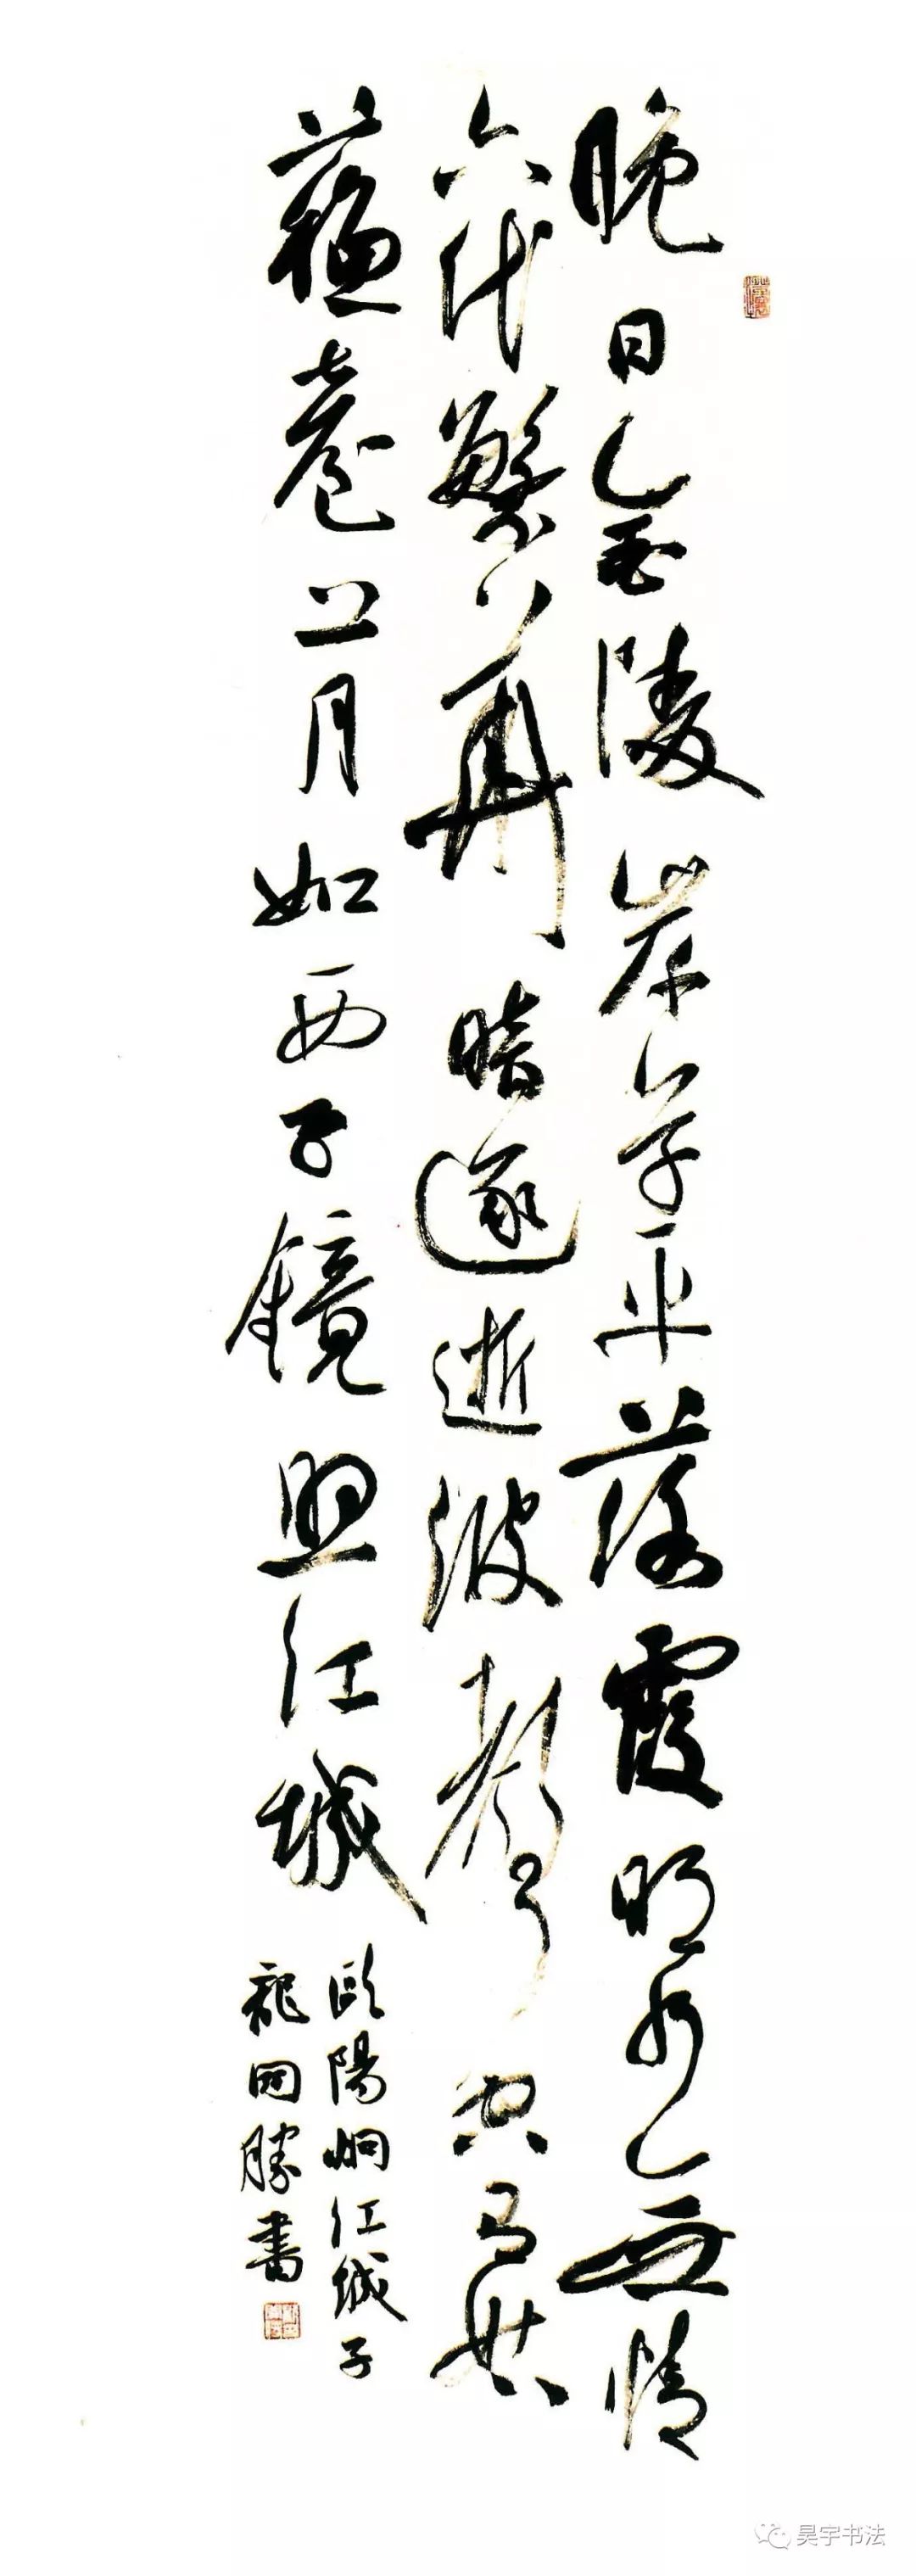 晚日金陵岸草平落霞明水無情
六代繁華暗逐逝波聲空有姑
蘇臺上月如西子鏡照江城
歐陽炯江城子
龍開勝書
昊宇书法